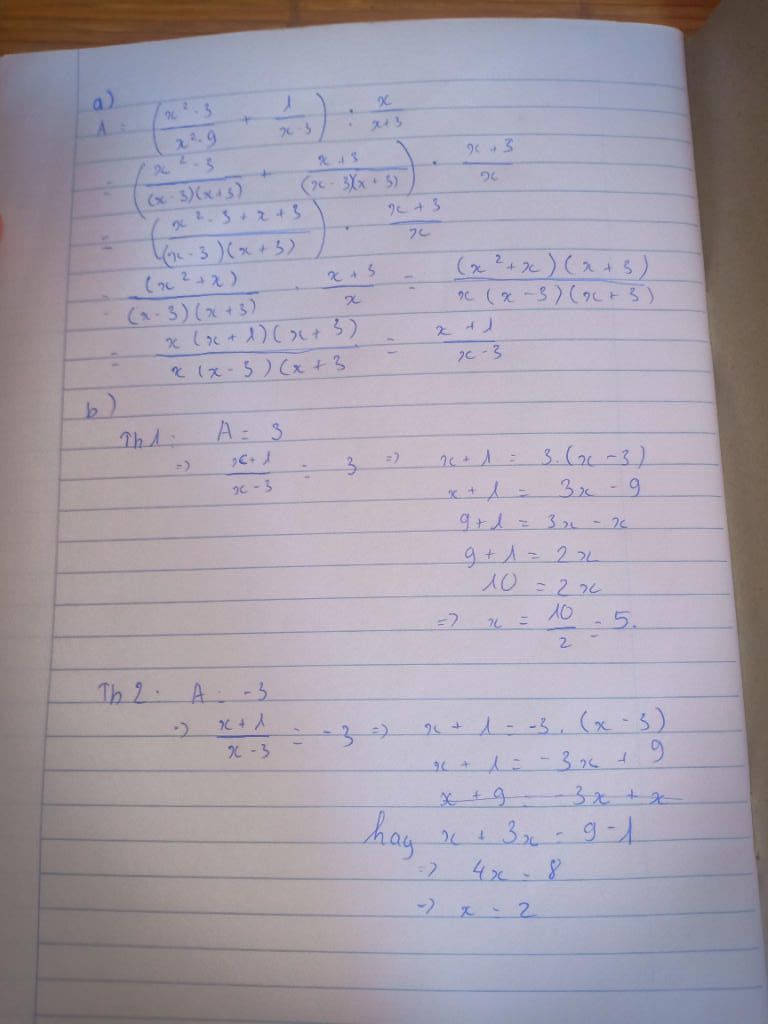 a)
A = (x² - 3 / x² - 9 + 1 / x - 3) : x / x + 3
= (x² - 3 / (x - 3)(x + 3) + x + 3 / (x - 3)(x + 3)) . x + 3 / x
= (x² - 3 + x + 3 / (x - 3)(x + 3)) . x + 3 / x
= (x² + x) / (x - 3)(x + 3) . x + 3 / x = (x² + x)(x + 3) / x(x - 3)(x + 3)
= x(x + 1)(x + 3) / x(x - 3)(x + 3 = x + 1 / x - 3
b)
Th1: A = 3
=> x + 1 / x - 3 = 3 => x + 1 = 3.(x - 3)
x + 1 = 3x - 9
9 + 1 = 3x - x
9 + 1 = 2x
10 = 2x
=> x = 10 / 2 = 5.
Th2: A = -3
=> x + 1 / x - 3 = -3 => x + 1 = -3.(x - 3)
x + 1 = -3x + 9
x + 9 = -3x + x
hay x + 3x = 9 - 1
=> 4x = 8
=> x = 2